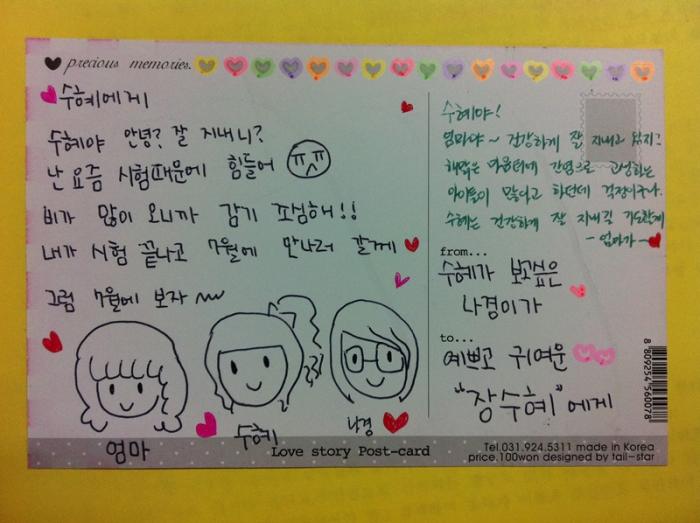 precious memories.
수혜에게
수혜야 안녕? 잘 지내니?
난 요즘 시험때문에 힘들어
비가 많이 오니까 감기 조심해!!
내가 시험 끝나고 7월에 만나러 갈게
그럼 7월에 보자
엄마
수혜
나경
수혜야!
엄마야~ 건강하게 잘 지내고 있지?
해맑은 마음터에 간염으로 고생하는
아이들이 많다고 하던데 걱정이구나.
수혜는 건강하게 잘 지내길 기도할게
- 엄마가 -
from...
수혜가 보고싶은
나경이가
to...
예쁘고 귀여운
"장수혜"에게
8 809254 560078
Love story Post-card
Tel.031.924.5311 made in Korea
price.100won designed by tail-star